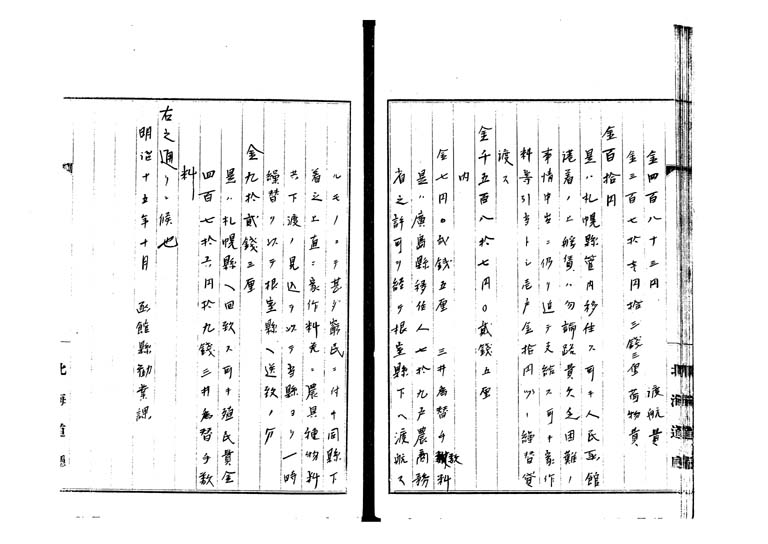 金四百八十三円　渡航費
金三百七拾壱円拾三銭三厘　荷物費
金百拾円
是ハ札幌縣管内移住スヘキ人民函館
港着ノ上船賃ハ勿論路費欠乏困難ノ
事情申出ニ仍リ追テ支給スヘキ家作
料等引当トシ壱戸金拾円ツヽ繰替貸
渡ス
金千五百八拾七円〇弐銭五厘
内
金七円〇弐銭五厘　三井為替手数料
是ハ廣島縣移住人七拾九戸農商務
省之許可ヲ経テ根室縣下ヘ渡航ス
ルモノニテ甚タ窮民ニ付キ同縣下
着之上直ニ家作料兼ニ農具種物料
共下渡ノ見込ヲ以テ当縣ヨリ一時
繰替ヲ以テ根室縣ヘ送致ノ分
金九拾弐銭三厘
是ハ札幌縣ヘ回致スヘキ殖民費金
四百七拾六円拾九銭三井為替手数
料
右之通リニ候也
明治十五年十月　函館縣勧業課
北海道廳
北海道廳